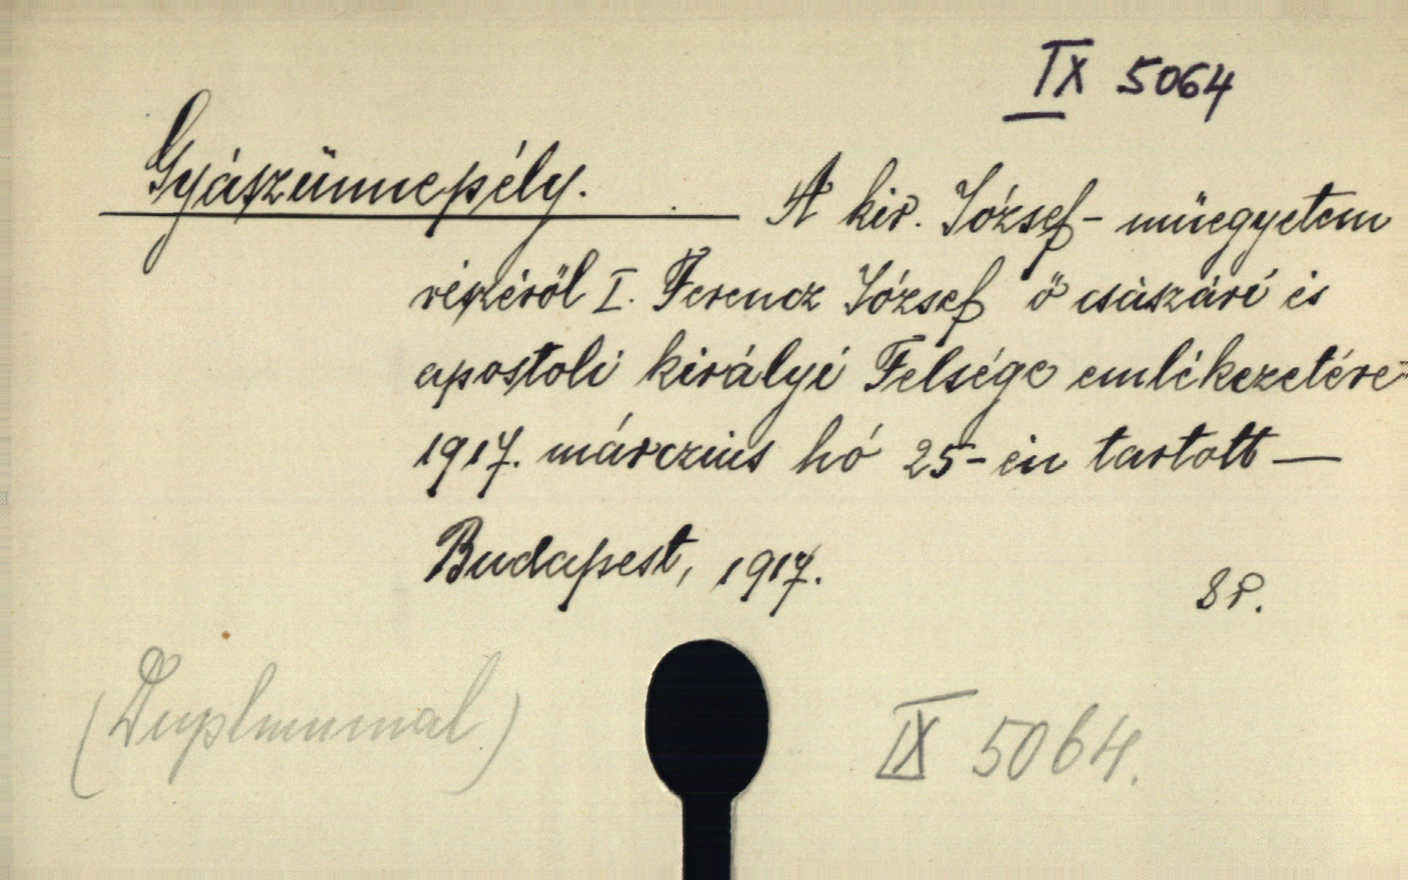 IX 5064
Gyászünnepély. A kir. József-műegyetem
részéről I. Ferencz József ő császári és
apostoli királyi Felsége emlékezetére
1917. márczius hó 25-én tartott —
Budapest, 1917.
8r.
(Duplummal)
IX 5064.